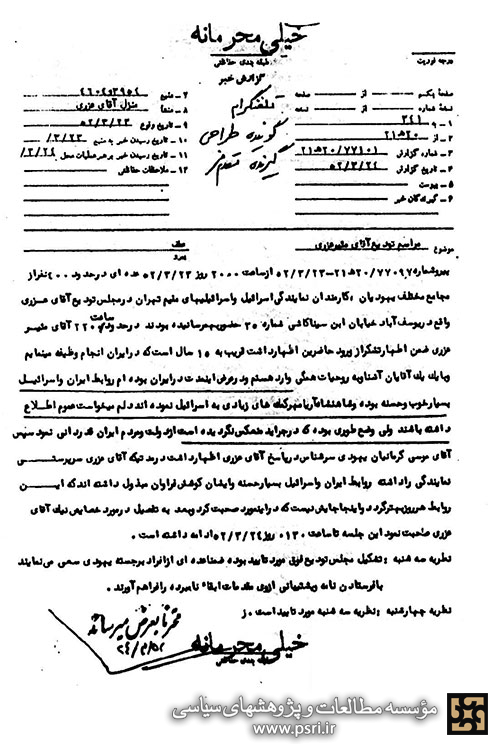 خیلی محرمانه
طبقه بندی حفاظتی
درجه فوریت
گزارش خبر
صفحه یکم از صفحه
نسخه شماره از نسخه
۱ - به ۳۴۱
۲ - از ۲۰ه۲۱
۳ - شماره گزارش ۲۱ه۲۰/۷۷۱۰۱
۴ - تاریخ گزارش ۵۲/۳/۲۴
۵ - پیوست
۶ - گیرندگان خبر
تلفنگرام
گوینده طراحی
گیرنده
۷ - منبع
۸ - منشأ منزل آقای عزری
۹ - تاریخ وقوع ۵۲/۳/۲۳
۱۰ - تاریخ رسیدن خبر به منبع ۳/۲۳/
۱۱ - تاریخ رسیدن خبر به رهبر عملیات محل ۳/۲۴/
۱۲ - ملاحظات حفاظتی
موضوع مراسم تودیع آقای مئیر عزری
عطف
پیرو
پیرو شماره ۲۱ه۲۰/۷۷۰۹۷-۵۲/۳/۲۳ از ساعت ۲۰۰۰ روز ۵۲/۳/۲۳ عده ای در حدود ۴۰۰ نفر از
مجامع مختلف یهودیان، کارمندان نمایندگی اسرائیل و اسرائیلیهای مقیم تهران در مجلس تودیع آقای عزری
واقع در یوسف آباد خیابان ابن سینا کاشی شماره ۳۵ حضور بهم رسانیده بودند در حدود ساعت ۲۲۰۰ آقای مئیر
عزری ضمن اظهار تشکر از ورود حاضرین اظهار داشت قریب به ۱۵ سال است که در ایران انجام وظیفه مینمایم
و با یک یک آقایان آشنا و به روحیات همگی وارد هستم و در عرض این مدت در ایران بوده ام روابط ایران و اسرائیل
بسیار خوب و حسنه بوده و شاهنشاه آریامهر کمک های زیادی به اسرائیل نموده اند دلم میخواست عموم اطلاع
داشته باشند ولی وضع طوری بوده که در جراید منعکس نگردیده است از دولت و مردم ایران قدردانی نمود سپس
آقای موسی کرمانیان یهودی سرشناس در پاسخ آقای عزری اظهار داشت در مدتیکه آقای عزری سرپرستی
نمایندگی را داشته روابط ایران و اسرائیل بسیار حسنه و ایشان کوشش فراوان مبذول داشته اند که این
روابط هر روز بهتر گردد و اینجا جایش نیست که در این مورد صحبت کرد و بعد به تفصیل در مورد خصایص نیک آقای
عزری صحبت نمود این جلسه تا ساعت ۰۱۳۰ روز ۵۲/۳/۲۴ ادامه داشته است.
نظریه سه شنبه : تشکیل مجلس تودیع فوق مورد تایید بوده ضمنا عده ای از افراد برجسته یهودی سعی می نمایند
با فرستادن نامه و پشتیبانی از وی مقدمات ابقاء نامبرده را فراهم آورند.
نظریه چهارشنبه : نظریه سه شنبه مورد تایید است. ز
بعرض میرساند
خیلی محرمانه
طبقه بندی حفاظتی
مؤسسه مطالعات و پژوهشهای سیاسی
www.psri.ir